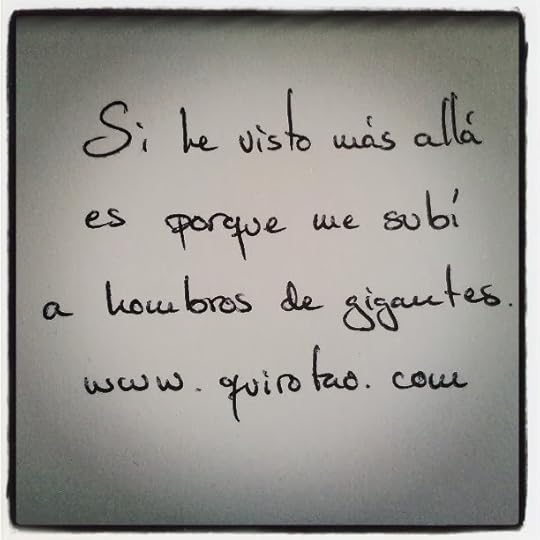 Si he visto más allá
es porque me subí
a hombros de gigantes.
www.quirotao.com